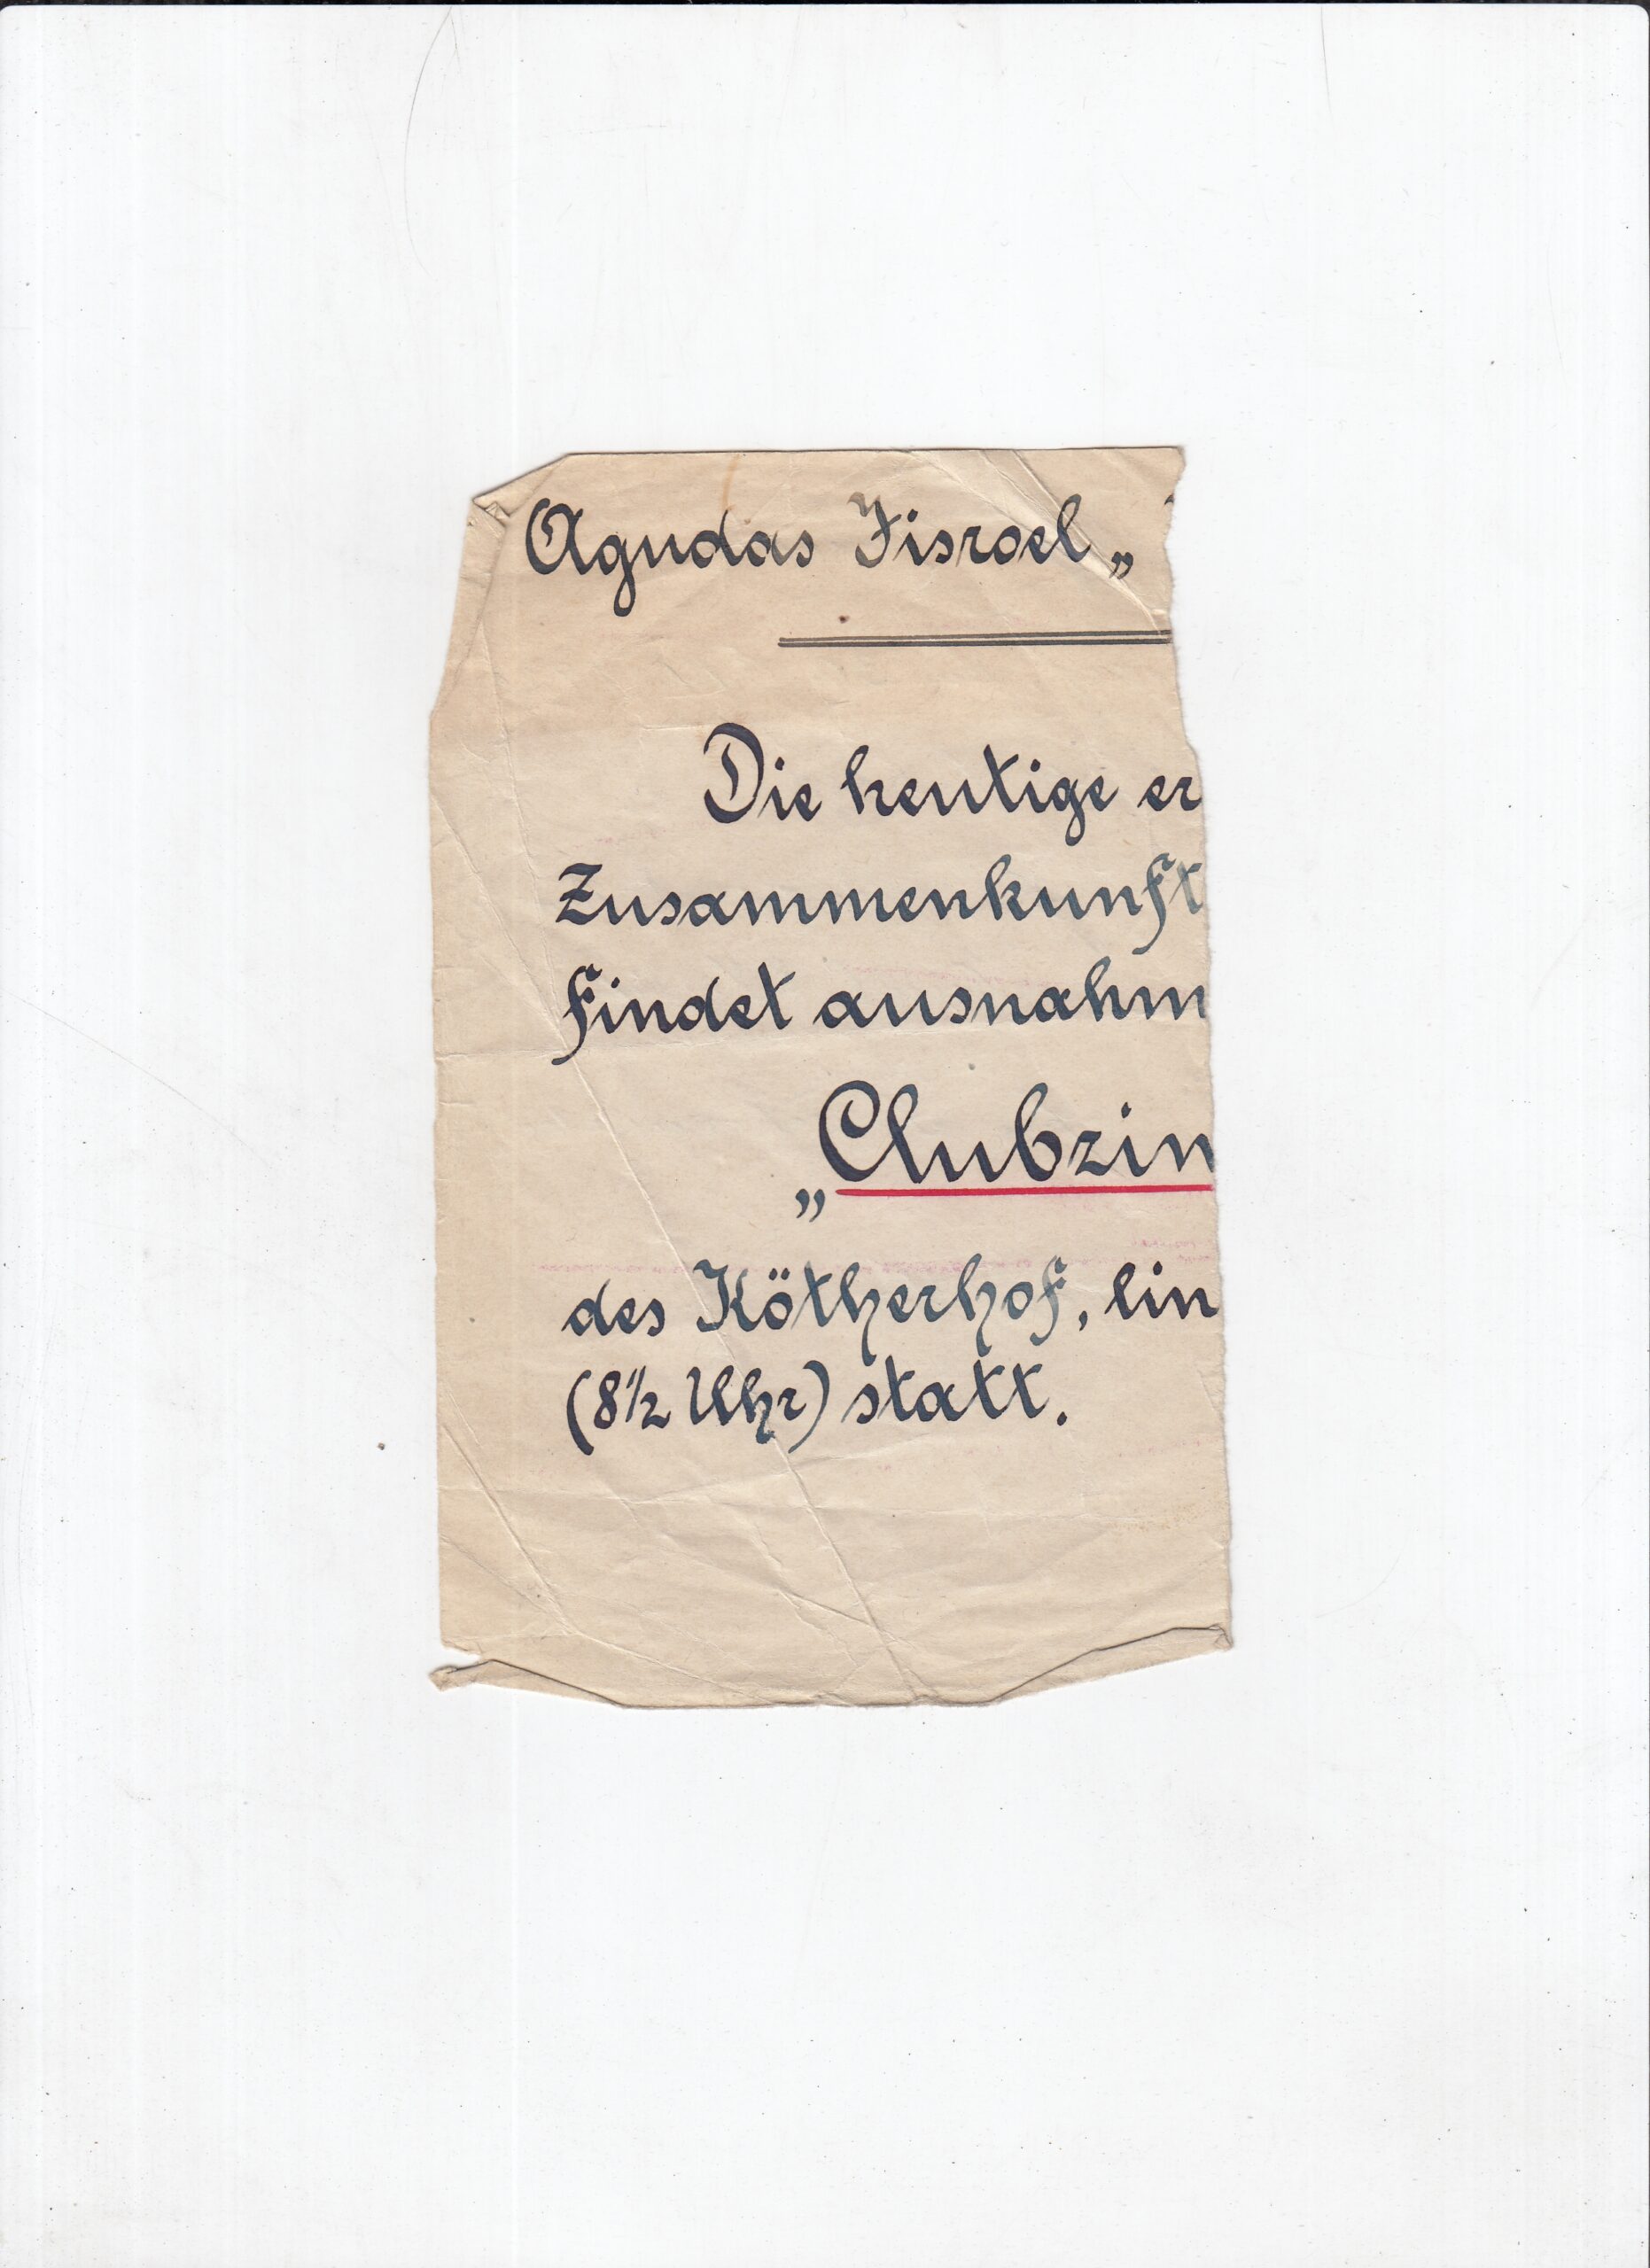 Agudas Jisroel „
Die heutige er
Zusammenkunft
findet ausnahm
„Clubzim
des Kötherhof, lin
(8½ Uhr) statt.